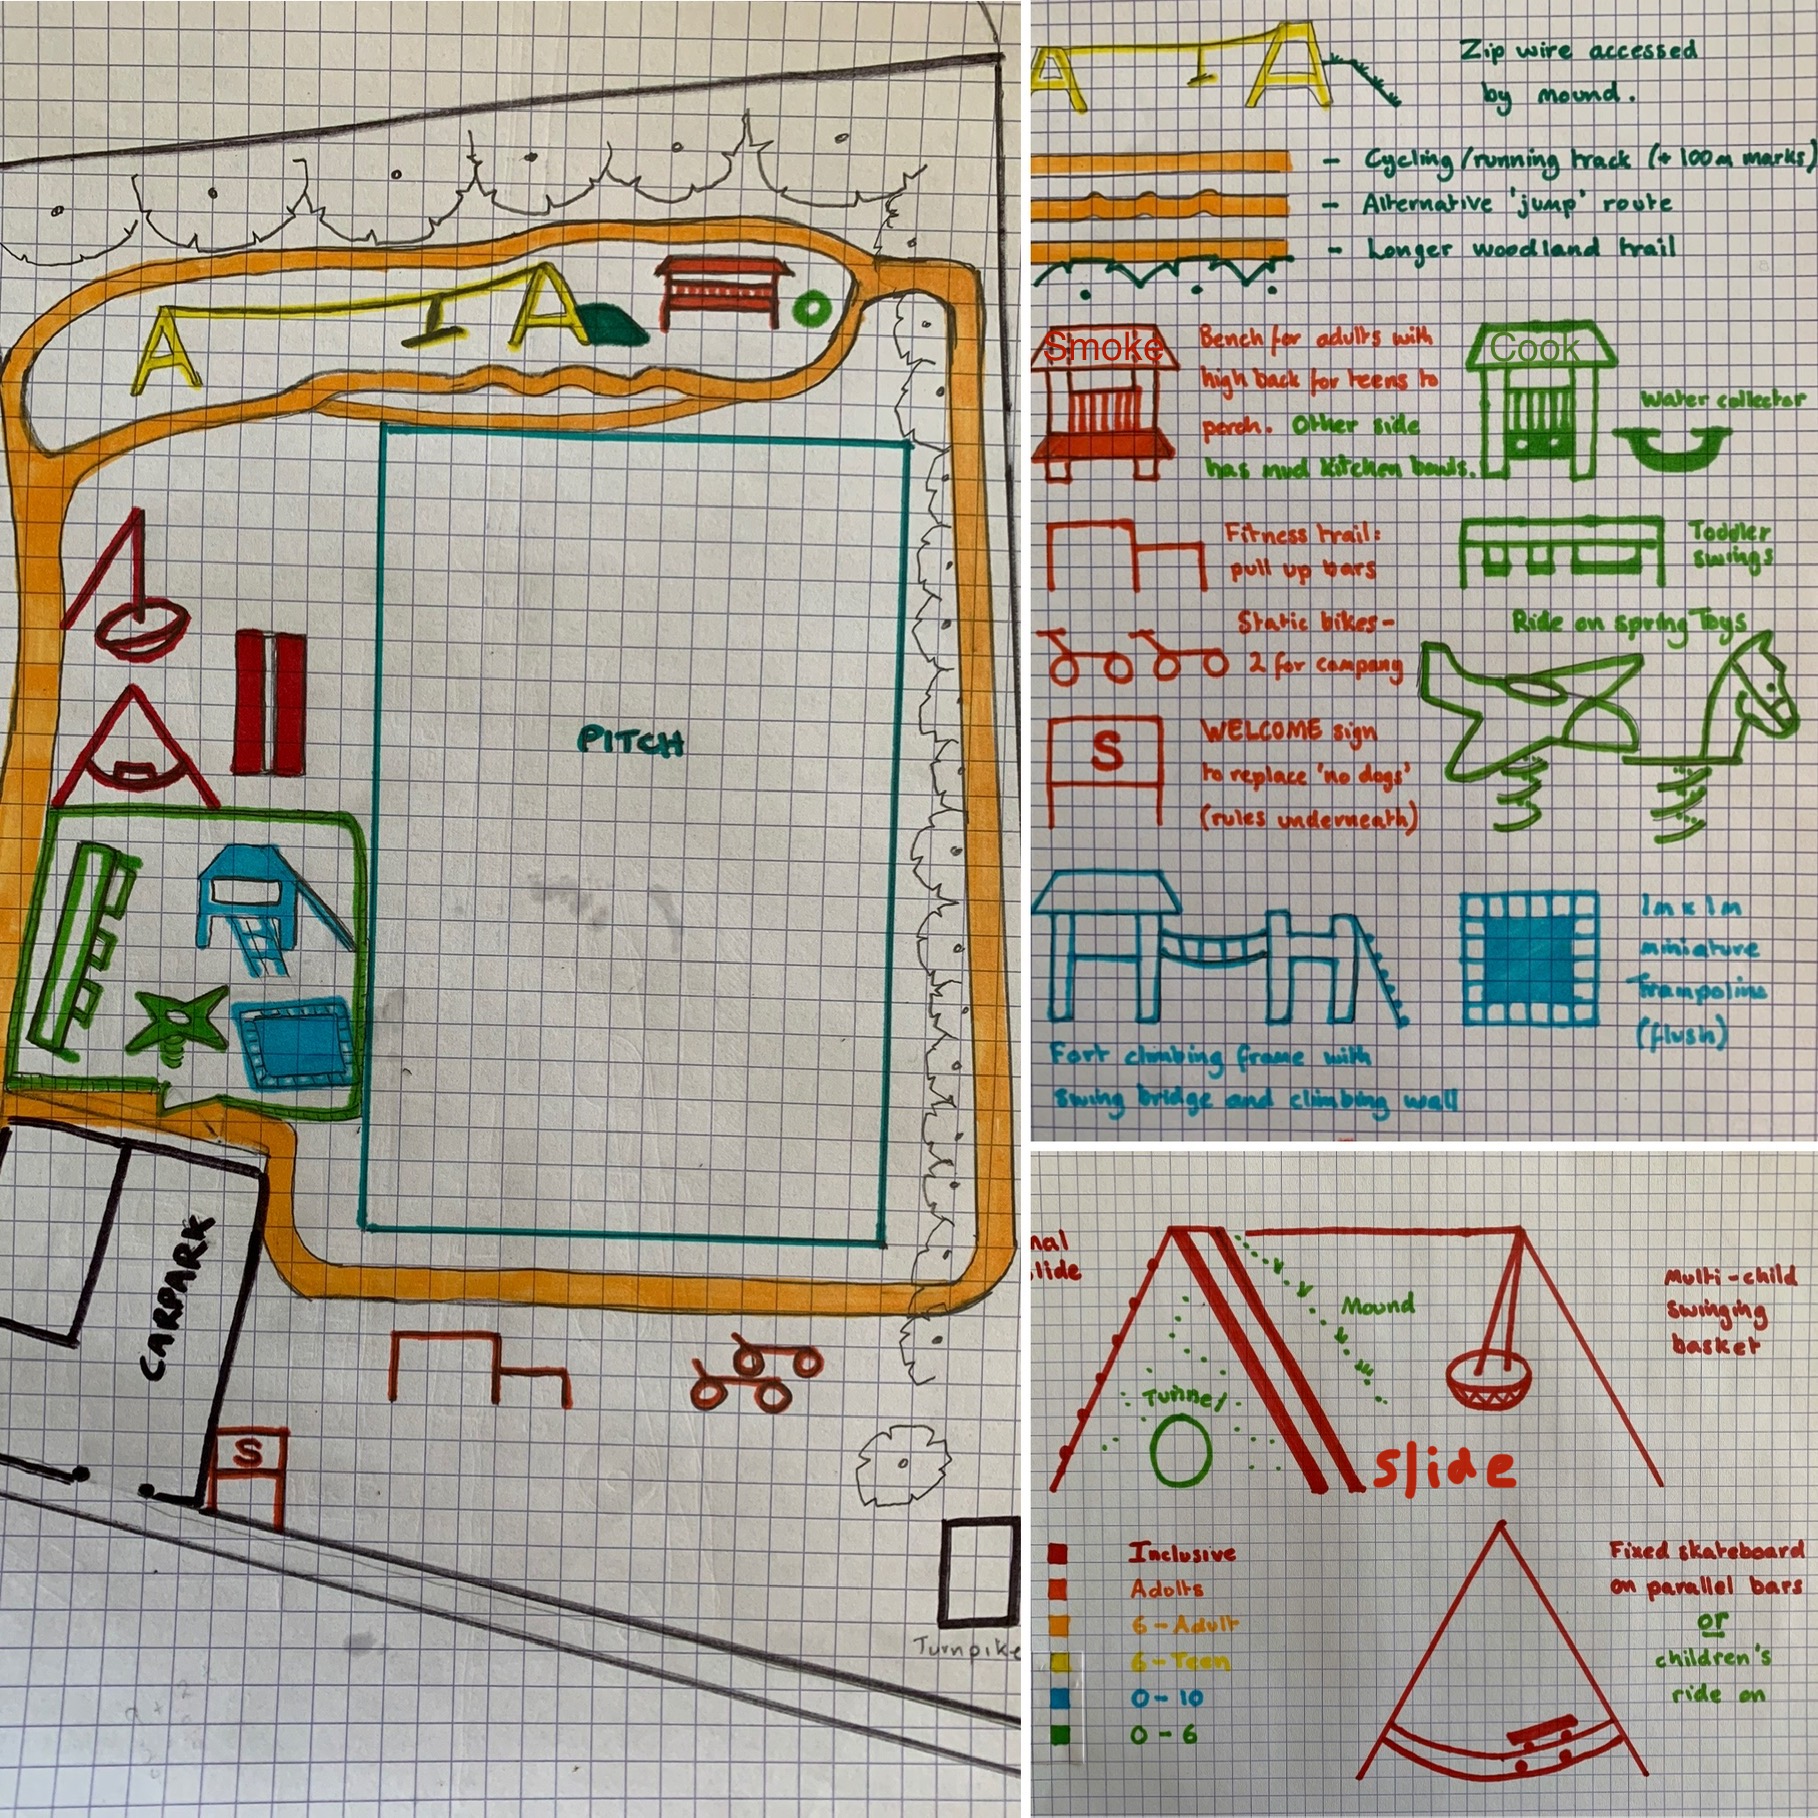 PITCH
CARPARK
S
Turnpike
Zip wire accessed
by mound.
- Cycling/running track (+ 100m marks)
- Alternative 'jump' route
- Longer woodland trail
Smoke
Bench for adults with
high back for teens to
perch. Other side
has mud kitchen bowls.
Cook
Water collector
Fitness trail:
pull up bars
Toddler
swings
Static bikes-
2 for company
Ride on spring Toys
S
WELCOME sign
to replace 'no dogs'
(rules underneath)
Fort climbing frame with
swing bridge and climbing wall
1m x 1m
miniature
Trampoline
(flush)
nal
lide
Mound
Tunnel
Slide
Multi-child
swinging
basket
Inclusive
Adults
6-Adult
6-Teen
0-10
0-6
Fixed skateboard
on parallel bars
or
children's
ride on